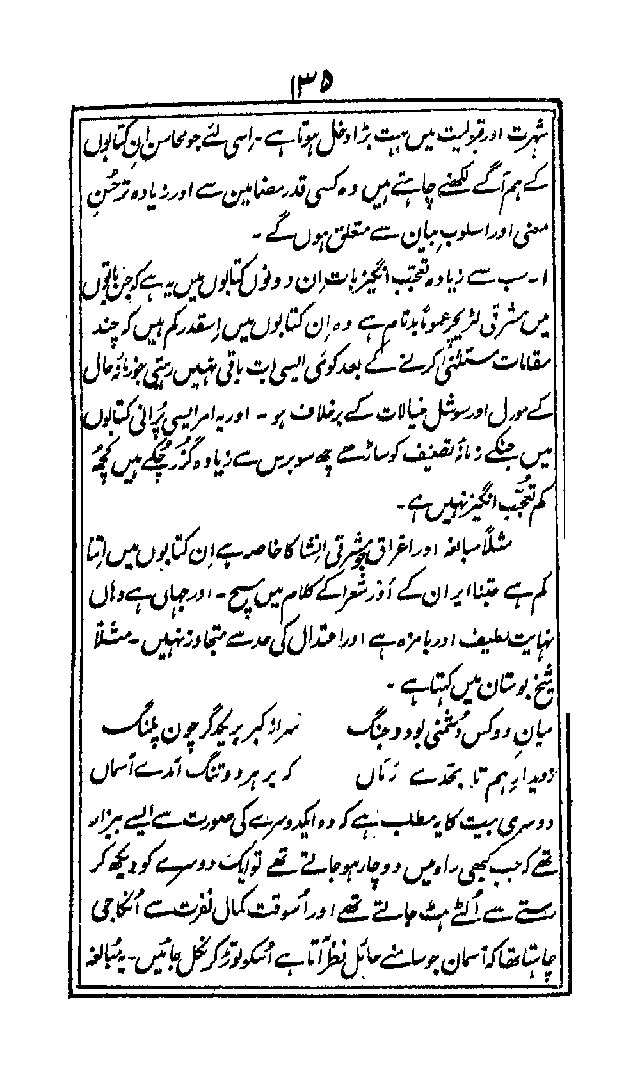 ۱۳۵
شہرت اور قبولیت میں بہت بڑا دخل ہوتا ہے - اسی لئے جو محاسن ان کتابوں
کے ہم آگے لکھنے چاہتے ہیں وہ کسی قدر مضامین سے اور زیادہ تر حُسنِ
معنی اور اسلوب بیان سے متعلق ہوں گے -
۱- سب سے زیادہ تعجب انگیز بات ان دونوں کتابوں میں یہ ہے کہ جن باتوں
میں مشرقی لٹریچر عموماً بدنام ہے وہ ان کتابوں میں اسقدر کم ہیں کہ چند
مقامات مستثنیٰ کرنے کے بعد کوئی ایسی بات باقی نہیں رہتی جو زمانۂ حال
کے مورل اور سوشل خیالات کے برخلاف ہو - اور یہ امر ایسی پُرانی کتابوں
میں جنکے زمانۂ تصنیف کو ساڑھے چھ سو برس سے زیادہ گزر چُکے ہیں کچھ
کم تعجُّب انگیز نہیں ہے -
مثلاً مبالغہ اور اغراق جو مشرقی انشا کا خاصہ ہے ان کتابوں میں اِتنا
کم ہے جتنا ایران کے اَور شعرا کے کلام میں سچ - اور جہاں ہے وہاں
نہایت لطیف اور بامزہ ہے اور اعتدال کی حد سے متجاوز نہیں - مثلاً
شیخ بوستان میں کہتا ہے -
میانِ دو کس دُشمنی بود و جنگ سراز کبر بر یکدگر چون پلنگ
ز دیدارِ ہم تا بحدے رَماں کہ بر ہر دو تنگ آمدے آسماں
دوسری بیت کا یہ مطلب ہے کہ وہ ایکدوسرے کی صورت سے ایسے بیزار
تھے کہ جب کبھی راہ میں دوچار ہو جاتے تھے تو ایک دوسرے کو دیکھ کر
رستے سے اُلٹے ہٹ جاتے تھے اور اُسوقت کمال نفرت سے اُنکا جی
چاہتا تھا کہ آسمان جو سامنے حائل نظر آتا ہے اُسکو توڑ کر نکل جائیں - یہ مُبالغہ